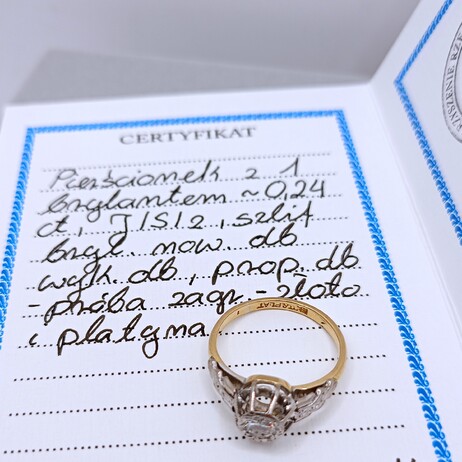 CERTYFIKAT
Pierścionek z 1
brylantem ~0,24
ct, J/SI2, szlif
bryl. now. db
wyk. db, prop. db
- próba zagr. - złoto
i platyna